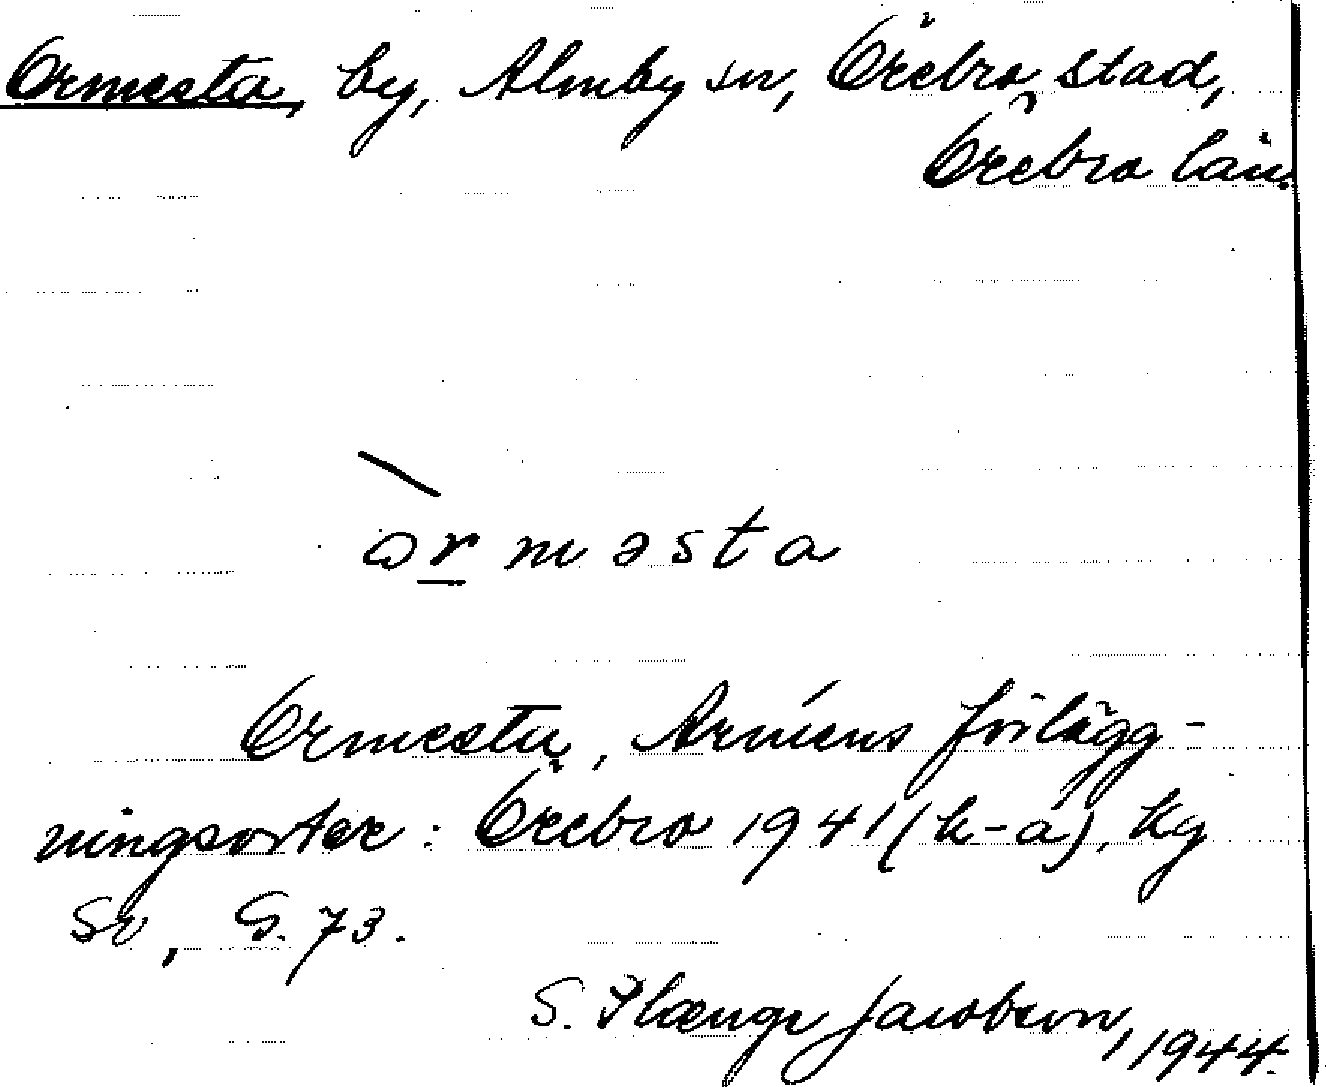 Ormesta, by, Almby sn, Örebro stad,
Örebro län.
ɷrməsta
Ormesta, Arméns förlägg-
ningsorter: Örebro 1941 (h-å), Kg
Sv, S. 73.
S. Plænge Jacobson, 1944.